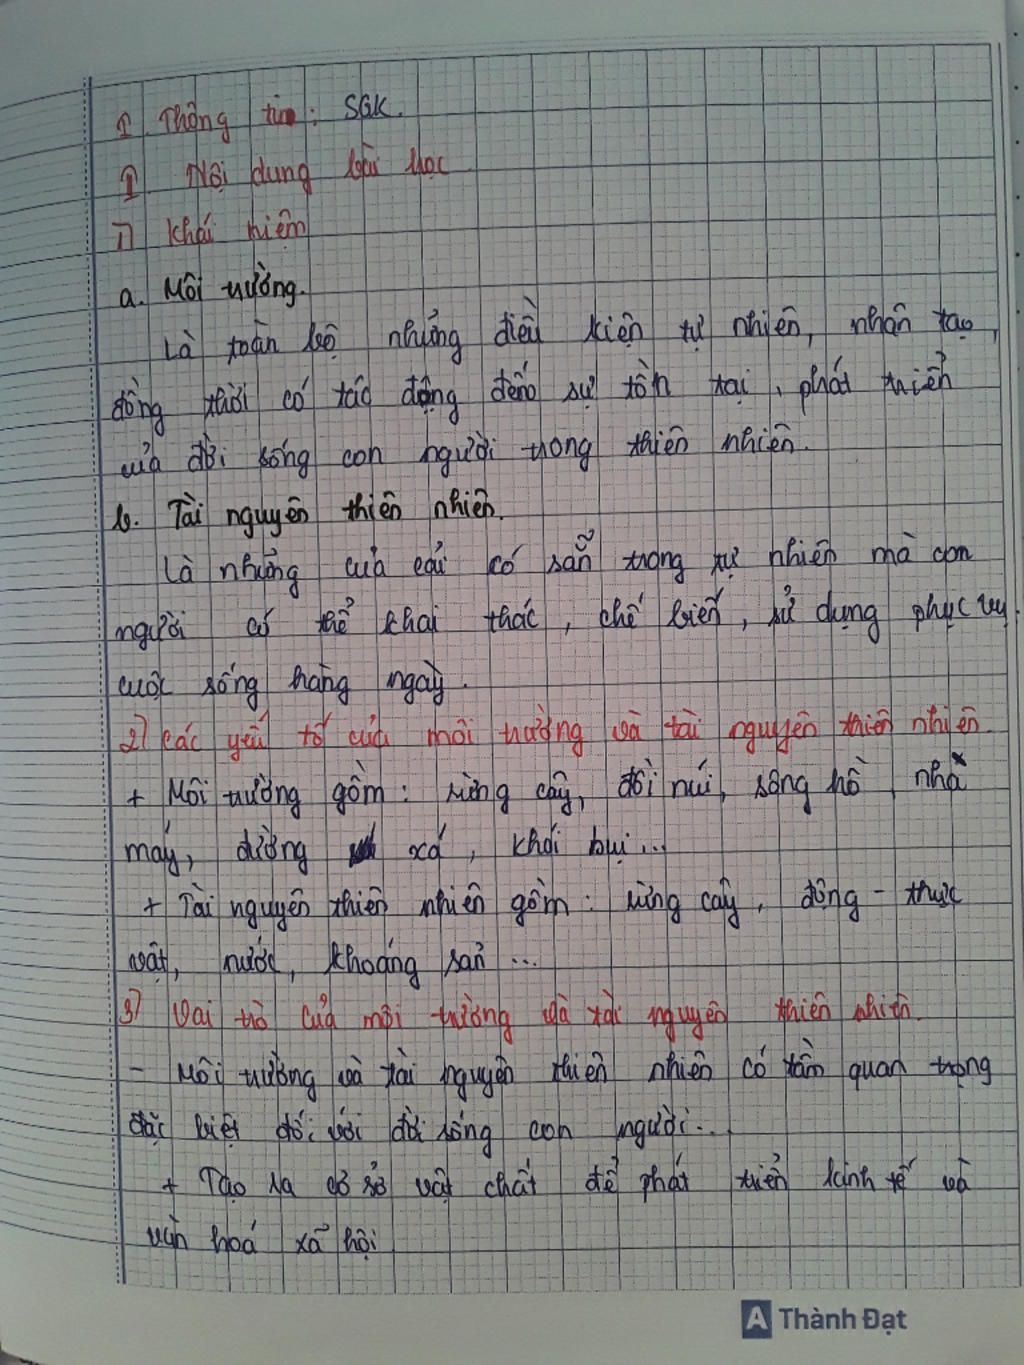 I. Thông tin: SGK.
II. Nội dung bài học
1) Khái niệm
a. Môi trường.
Là toàn bộ những điều kiện tự nhiên, nhân tạo,
đồng thời có tác động đến sự tồn tại, phát triển
của đời sống con người trong thiên nhiên.
b. Tài nguyên thiên nhiên.
Là những của cải có sẵn trong tự nhiên mà con
người có thể khai thác, chế biến, sử dụng phục vụ
cuộc sống hàng ngày.
2) Các yếu tố của môi trường và tài nguyên thiên nhiên.
+ Môi trường gồm: rừng cây, đồi núi, sông hồ, nhà
máy, đường xá, khói bụi...
+ Tài nguyên thiên nhiên gồm: rừng cây, động - thực
vật, nước, khoáng sản...
3) Vai trò của môi trường và tài nguyên thiên nhiên.
- Môi trường và tài nguyên thiên nhiên có tầm quan trọng
đặc biệt đối với đời sống con người...
+ Tạo ra cở sở vật chất để phát triển kinh tế và
văn hoá xã hội
A Thành Đạt